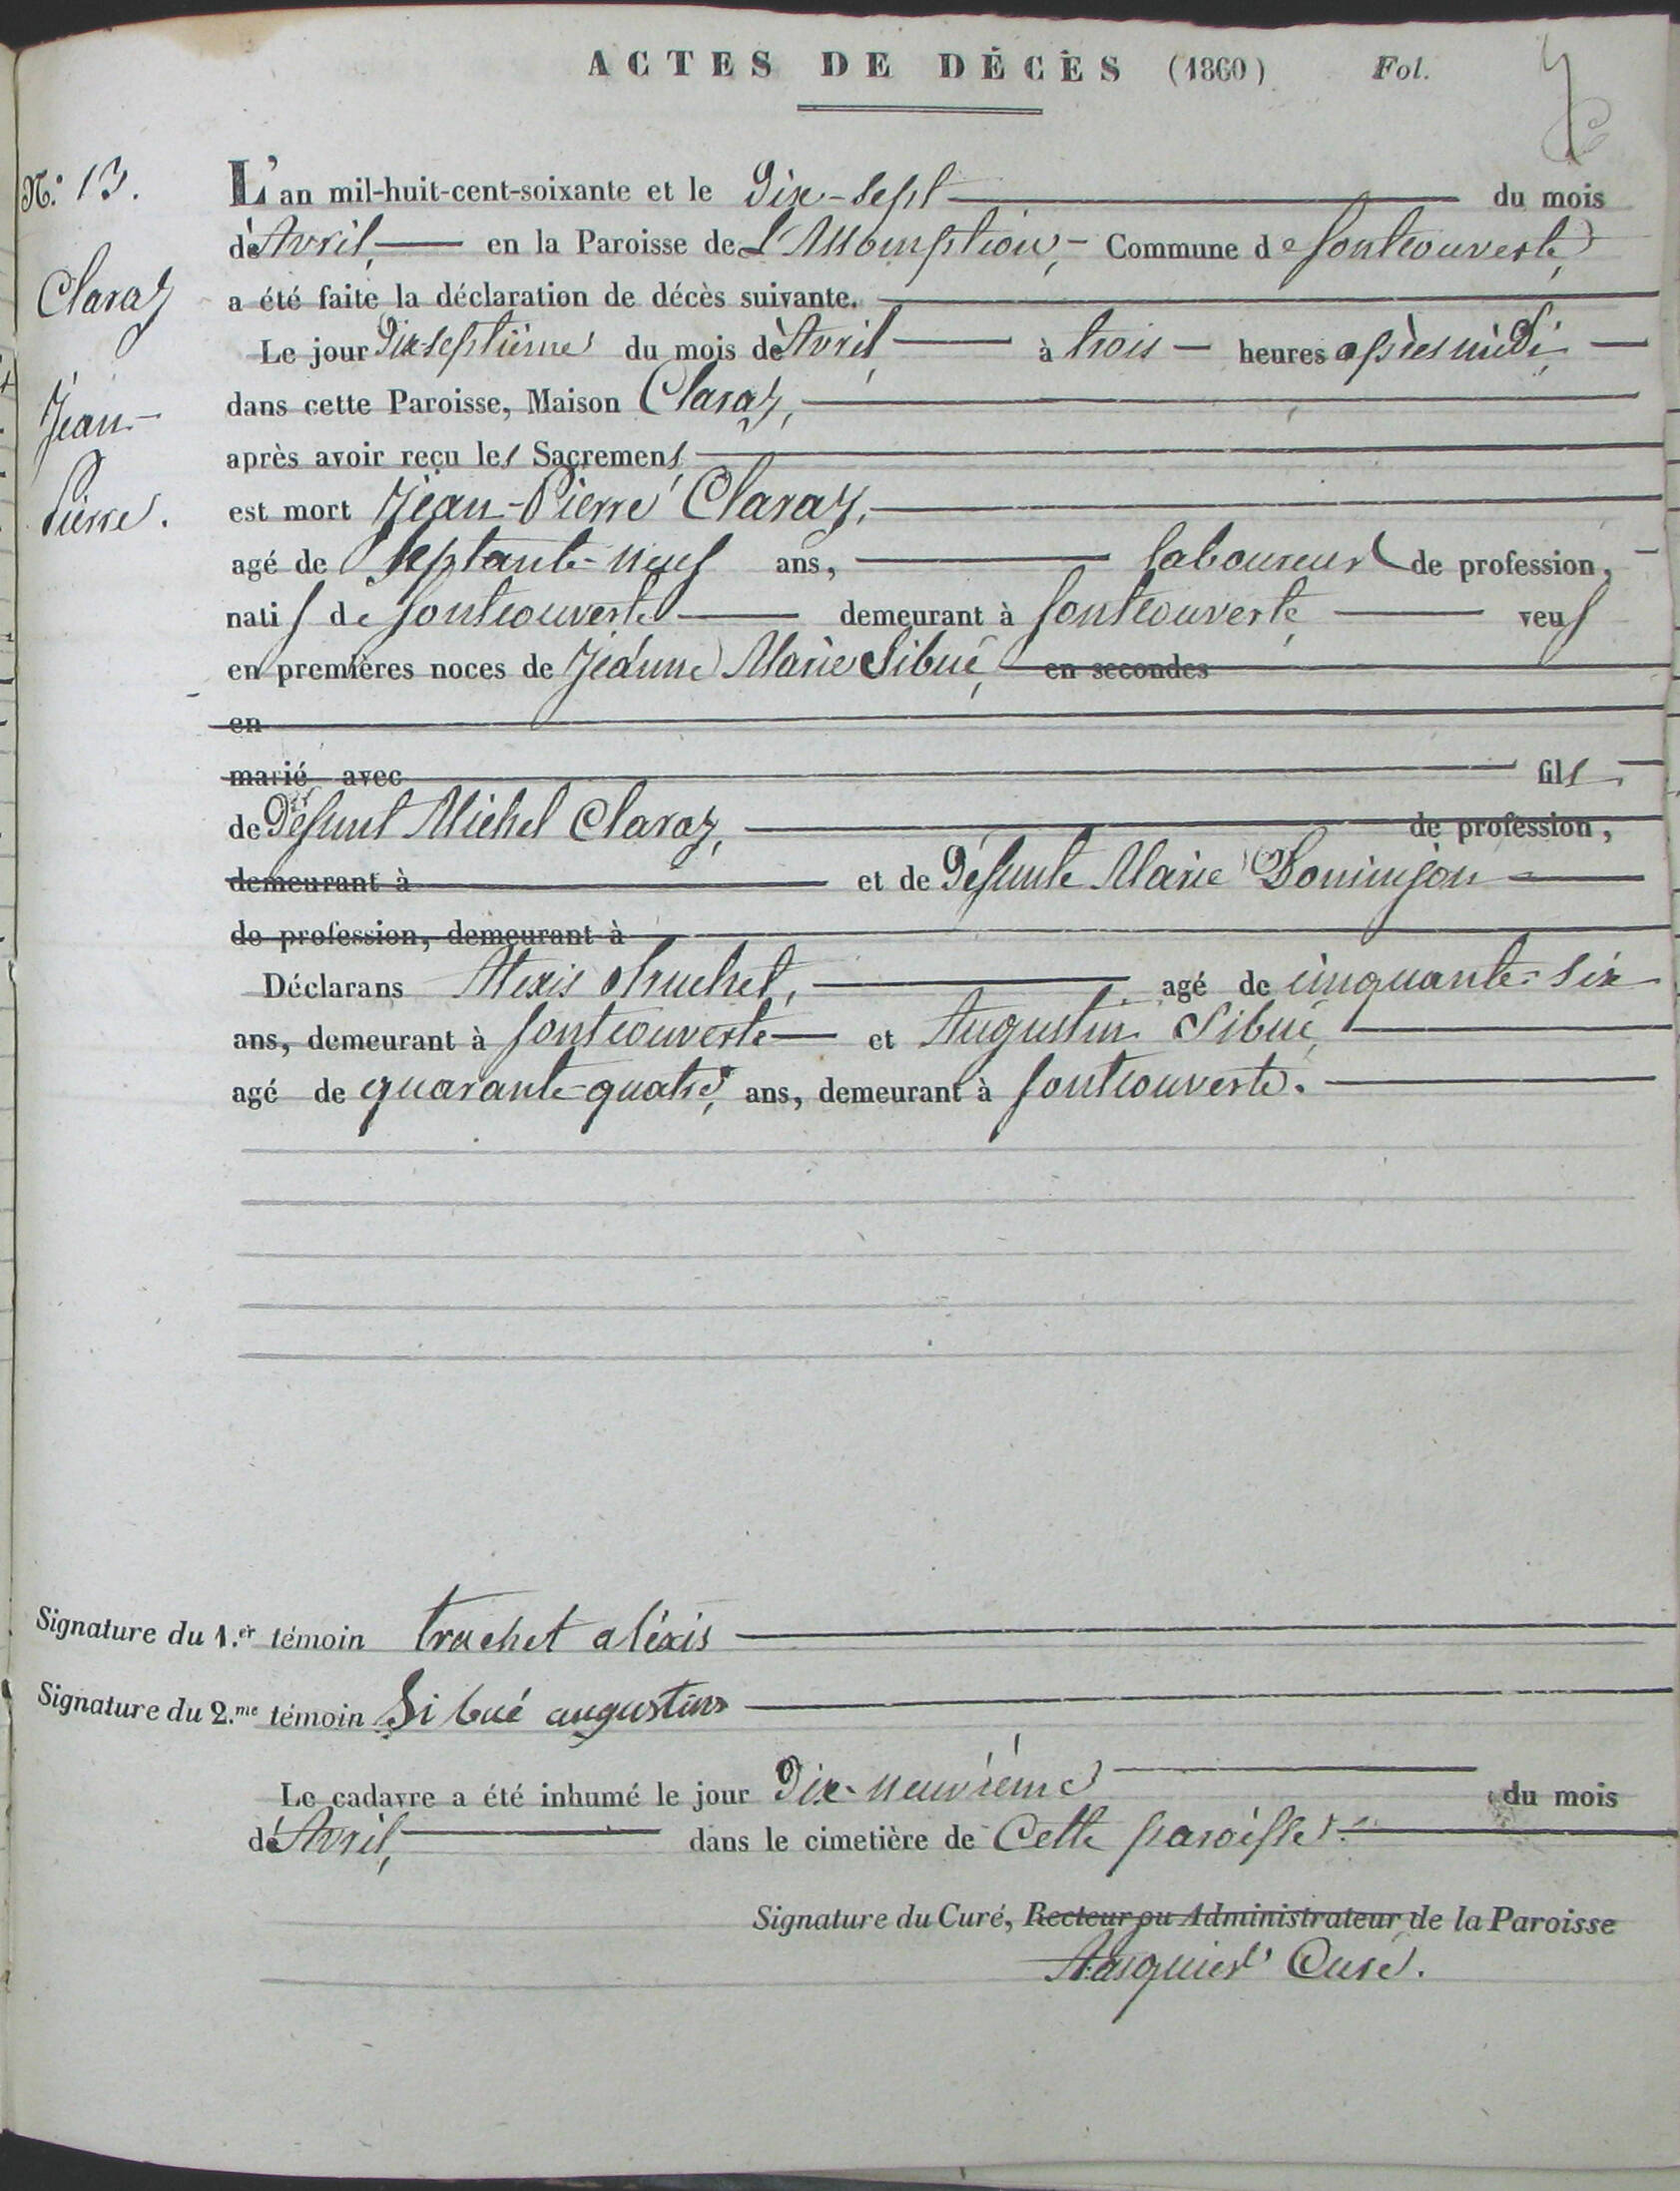 ACTES DE DÉCÈS (1860) Fol.
N.º 13.
Claraz
Jean-
Pierre.
L'an mil-huit-cent-soixante et le Dix-sept du mois
d'Avril, en la Paroisse de L'Assomption, Commune de fontcouverte,
a été faite la déclaration de décès suivante.
Le jour Dix-septième du mois d'Avril à trois heures après midi,
dans cette Paroisse, Maison Claraz,
après avoir reçu les Sacremens
est mort Jean-Pierre Claraz,
agé de septante-neuf ans, laboureur de profession,
natif de fontcouverte demeurant à fontcouverte veuf
en premières noces de Jeanne Marie Sibué, en secondes
en
marié avec fils
de Défunt Michel Claraz, de profession,
demeurant à et de Défunte Marie Dominjon
de profession, demeurant à
Déclarans Alexis Truchet, agé de cinquante-six
ans, demeurant à fontcouverte et Augustin Sibué,
agé de quarante-quatre, ans, demeurant à fontcouverte.
Signature du 1.er témoin truchet aléxis
Signature du 2.me témoin Si bué augustin
Le cadavre a été inhumé le jour Dix-neuvième du mois
d'Avril, dans le cimetière de Cette paroisse.
Signature du Curé, Recteur ou Administrateur de la Paroisse
Curé.